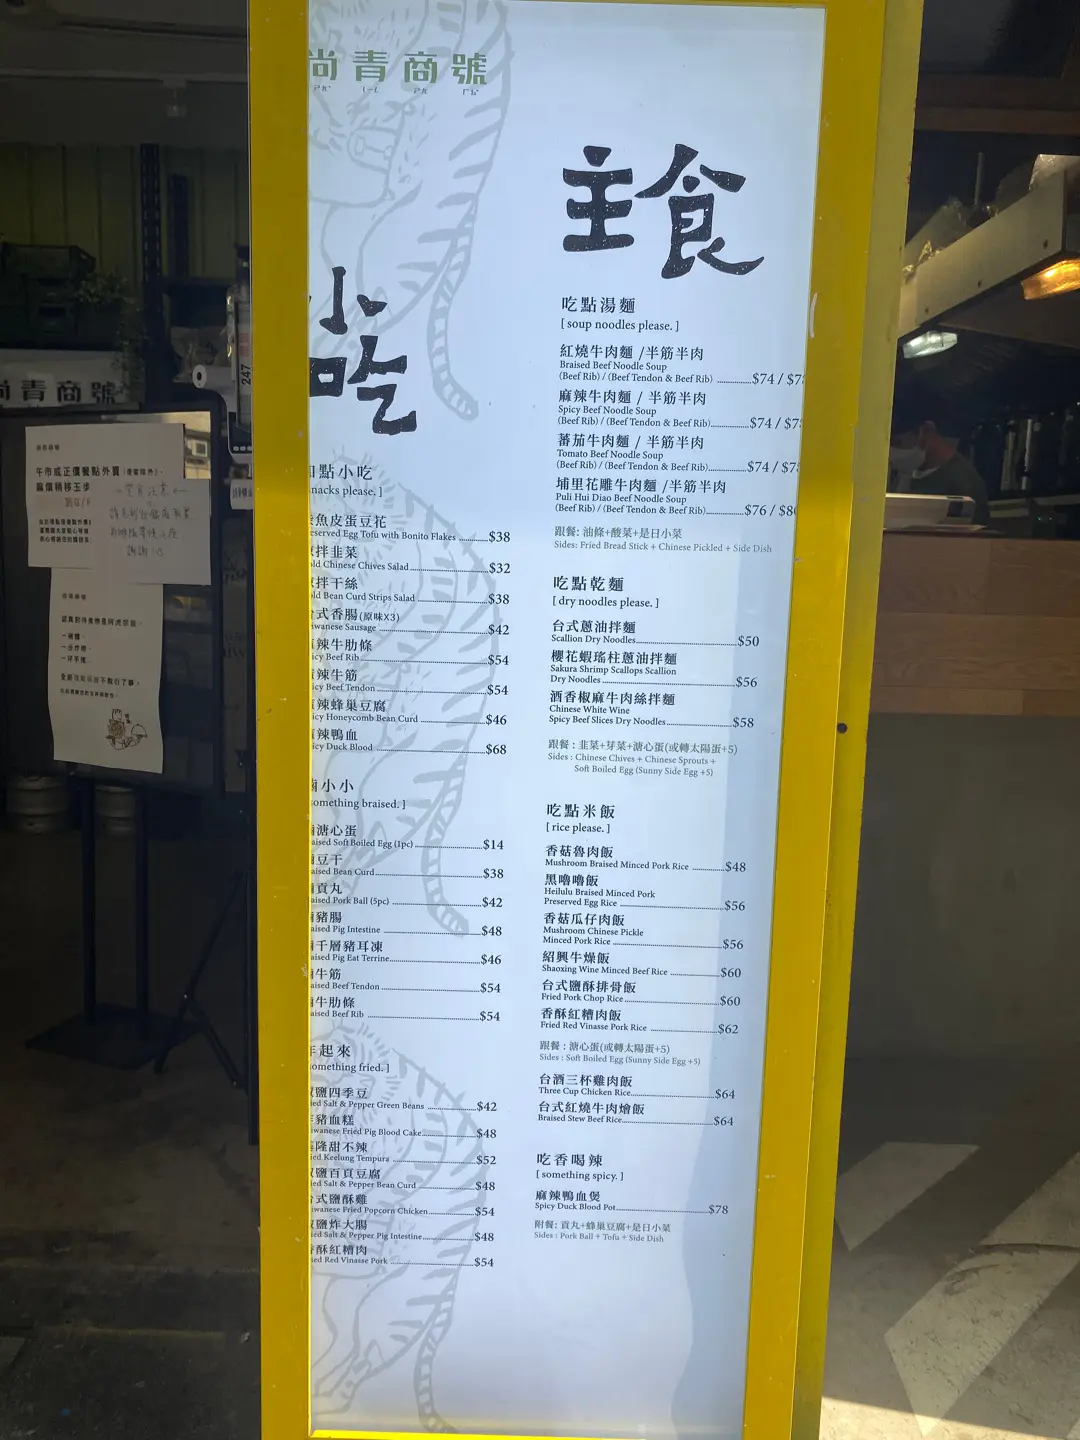 尚青商號
小吃
點小吃
nacks please. ]
魚皮蛋豆花
eserved Egg Tofu with Bonito Flakes $38
拌韭菜
old Chinese Chives Salad $32
拌干絲
old Bean Curd Strips Salad $38
式香腸(原味X3)
iwanese Sausage $42
辣牛肋條
icy Beef Rib $54
辣牛筋
icy Beef Tendon $54
辣蜂巢豆腐
icy Honeycomb Bean Curd $46
辣鴨血
icy Duck Blood $68
滷小小
something braised. ]
溏心蛋
aised Soft Boiled Egg (1pc) $14
豆干
aised Bean Curd $38
貢丸
aised Pork Ball (5pc) $42
豬腸
aised Pig Intestine $48
千層豬耳凍
aised Pig Eat Terrine $46
牛筋
aised Beef Tendon $54
牛肋條
aised Beef Rib $54
起來
omething fried. ]
鹽四季豆
ied Salt & Pepper Green Beans $42
豬血糕
iwanese Fried Pig Blood Cake $48
隆甜不辣
ied Keelung Tempura $52
鹽百頁豆腐
ied Salt & Pepper Bean Curd $48
式鹽酥雞
iwanese Fried Popcorn Chicken $54
鹽炸大腸
ied Salt & Pepper Pig Intestine $48
酥紅糟肉
ied Red Vinasse Pork $54
主食
吃點湯麵
[ soup noodles please. ]
紅燒牛肉麵 / 半筋半肉
Braised Beef Noodle Soup
(Beef Rib) / (Beef Tendon & Beef Rib) $74 / $7
麻辣牛肉麵 / 半筋半肉
Spicy Beef Noodle Soup
(Beef Rib) / (Beef Tendon & Beef Rib) $74 / $7
蕃茄牛肉麵 / 半筋半肉
Tomato Beef Noodle Soup
(Beef Rib) / (Beef Tendon & Beef Rib) $74 / $7
埔里花雕牛肉麵 / 半筋半肉
Puli Hui Diao Beef Noodle Soup
(Beef Rib) / (Beef Tendon & Beef Rib) $76 / $8
跟餐: 油條+酸菜+是日小菜
Sides: Fried Bread Stick + Chinese Pickled + Side Dish
吃點乾麵
[ dry noodles please. ]
台式蔥油拌麵
Scallion Dry Noodles $50
櫻花蝦瑤柱蔥油拌麵
Sakura Shrimp Scallops Scallion
Dry Noodles $56
酒香椒麻牛肉絲拌麵
Chinese White Wine
Spicy Beef Slices Dry Noodles $58
跟餐 : 韭菜+芽菜+溏心蛋(或轉太陽蛋+5)
Sides : Chinese Chives + Chinese Sprouts +
Soft Boiled Egg (Sunny Side Egg +5)
吃點米飯
[ rice please. ]
香菇魯肉飯
Mushroom Braised Minced Pork Rice $48
黑嚕嚕飯
Heilulu Braised Minced Pork
Preserved Egg Rice $56
香菇瓜仔肉飯
Mushroom Chinese Pickle
Minced Pork Rice $56
紹興牛燥飯
Shaoxing Wine Minced Beef Rice $60
台式鹽酥排骨飯
Fried Pork Chop Rice $60
香酥紅糟肉飯
Fried Red Vinasse Pork Rice $62
跟餐 : 溏心蛋(或轉太陽蛋+5)
Sides : Soft Boiled Egg (Sunny Side Egg +5)
台酒三杯雞肉飯
Three Cup Chicken Rice $64
台式紅燒牛肉燴飯
Braised Stew Beef Rice $64
吃香喝辣
[ something spicy. ]
麻辣鴨血煲
Spicy Duck Blood Pot $78
附餐: 貢丸+蜂巢豆腐+是日小菜
Sides : Pork Ball + Tofu + Side Dish
青商號
247